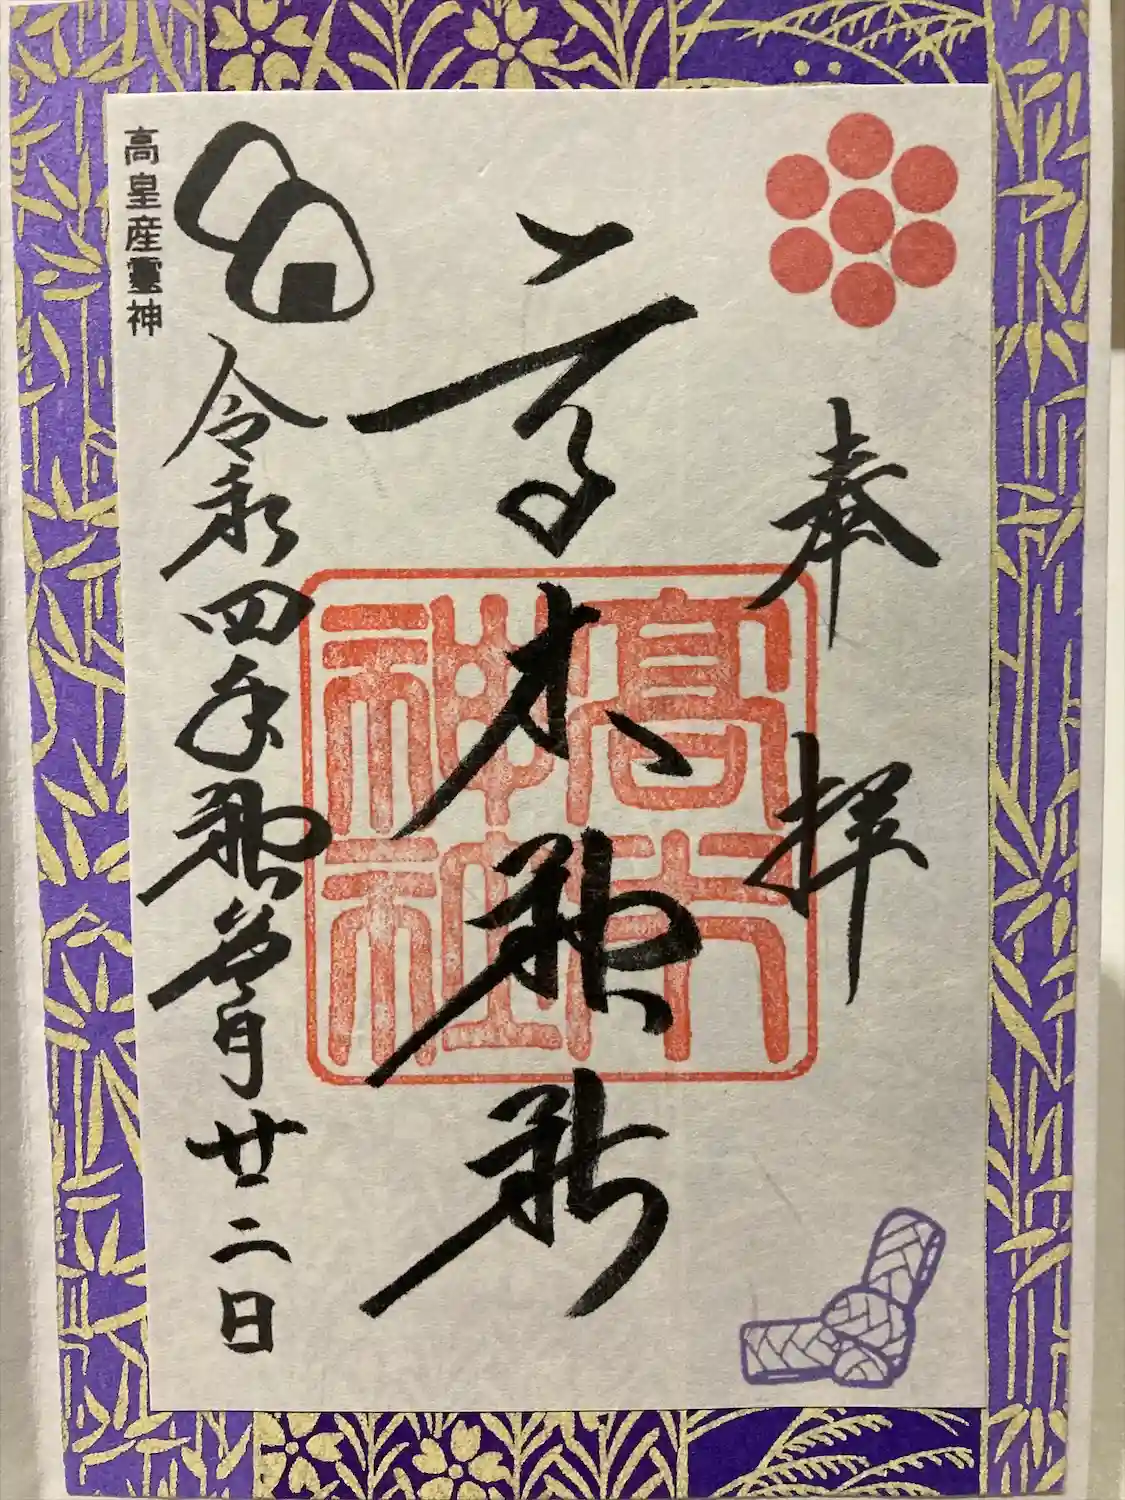 奉拝
高木神社
高木
神社
高皇産霊神
令和四年神無月廿二日